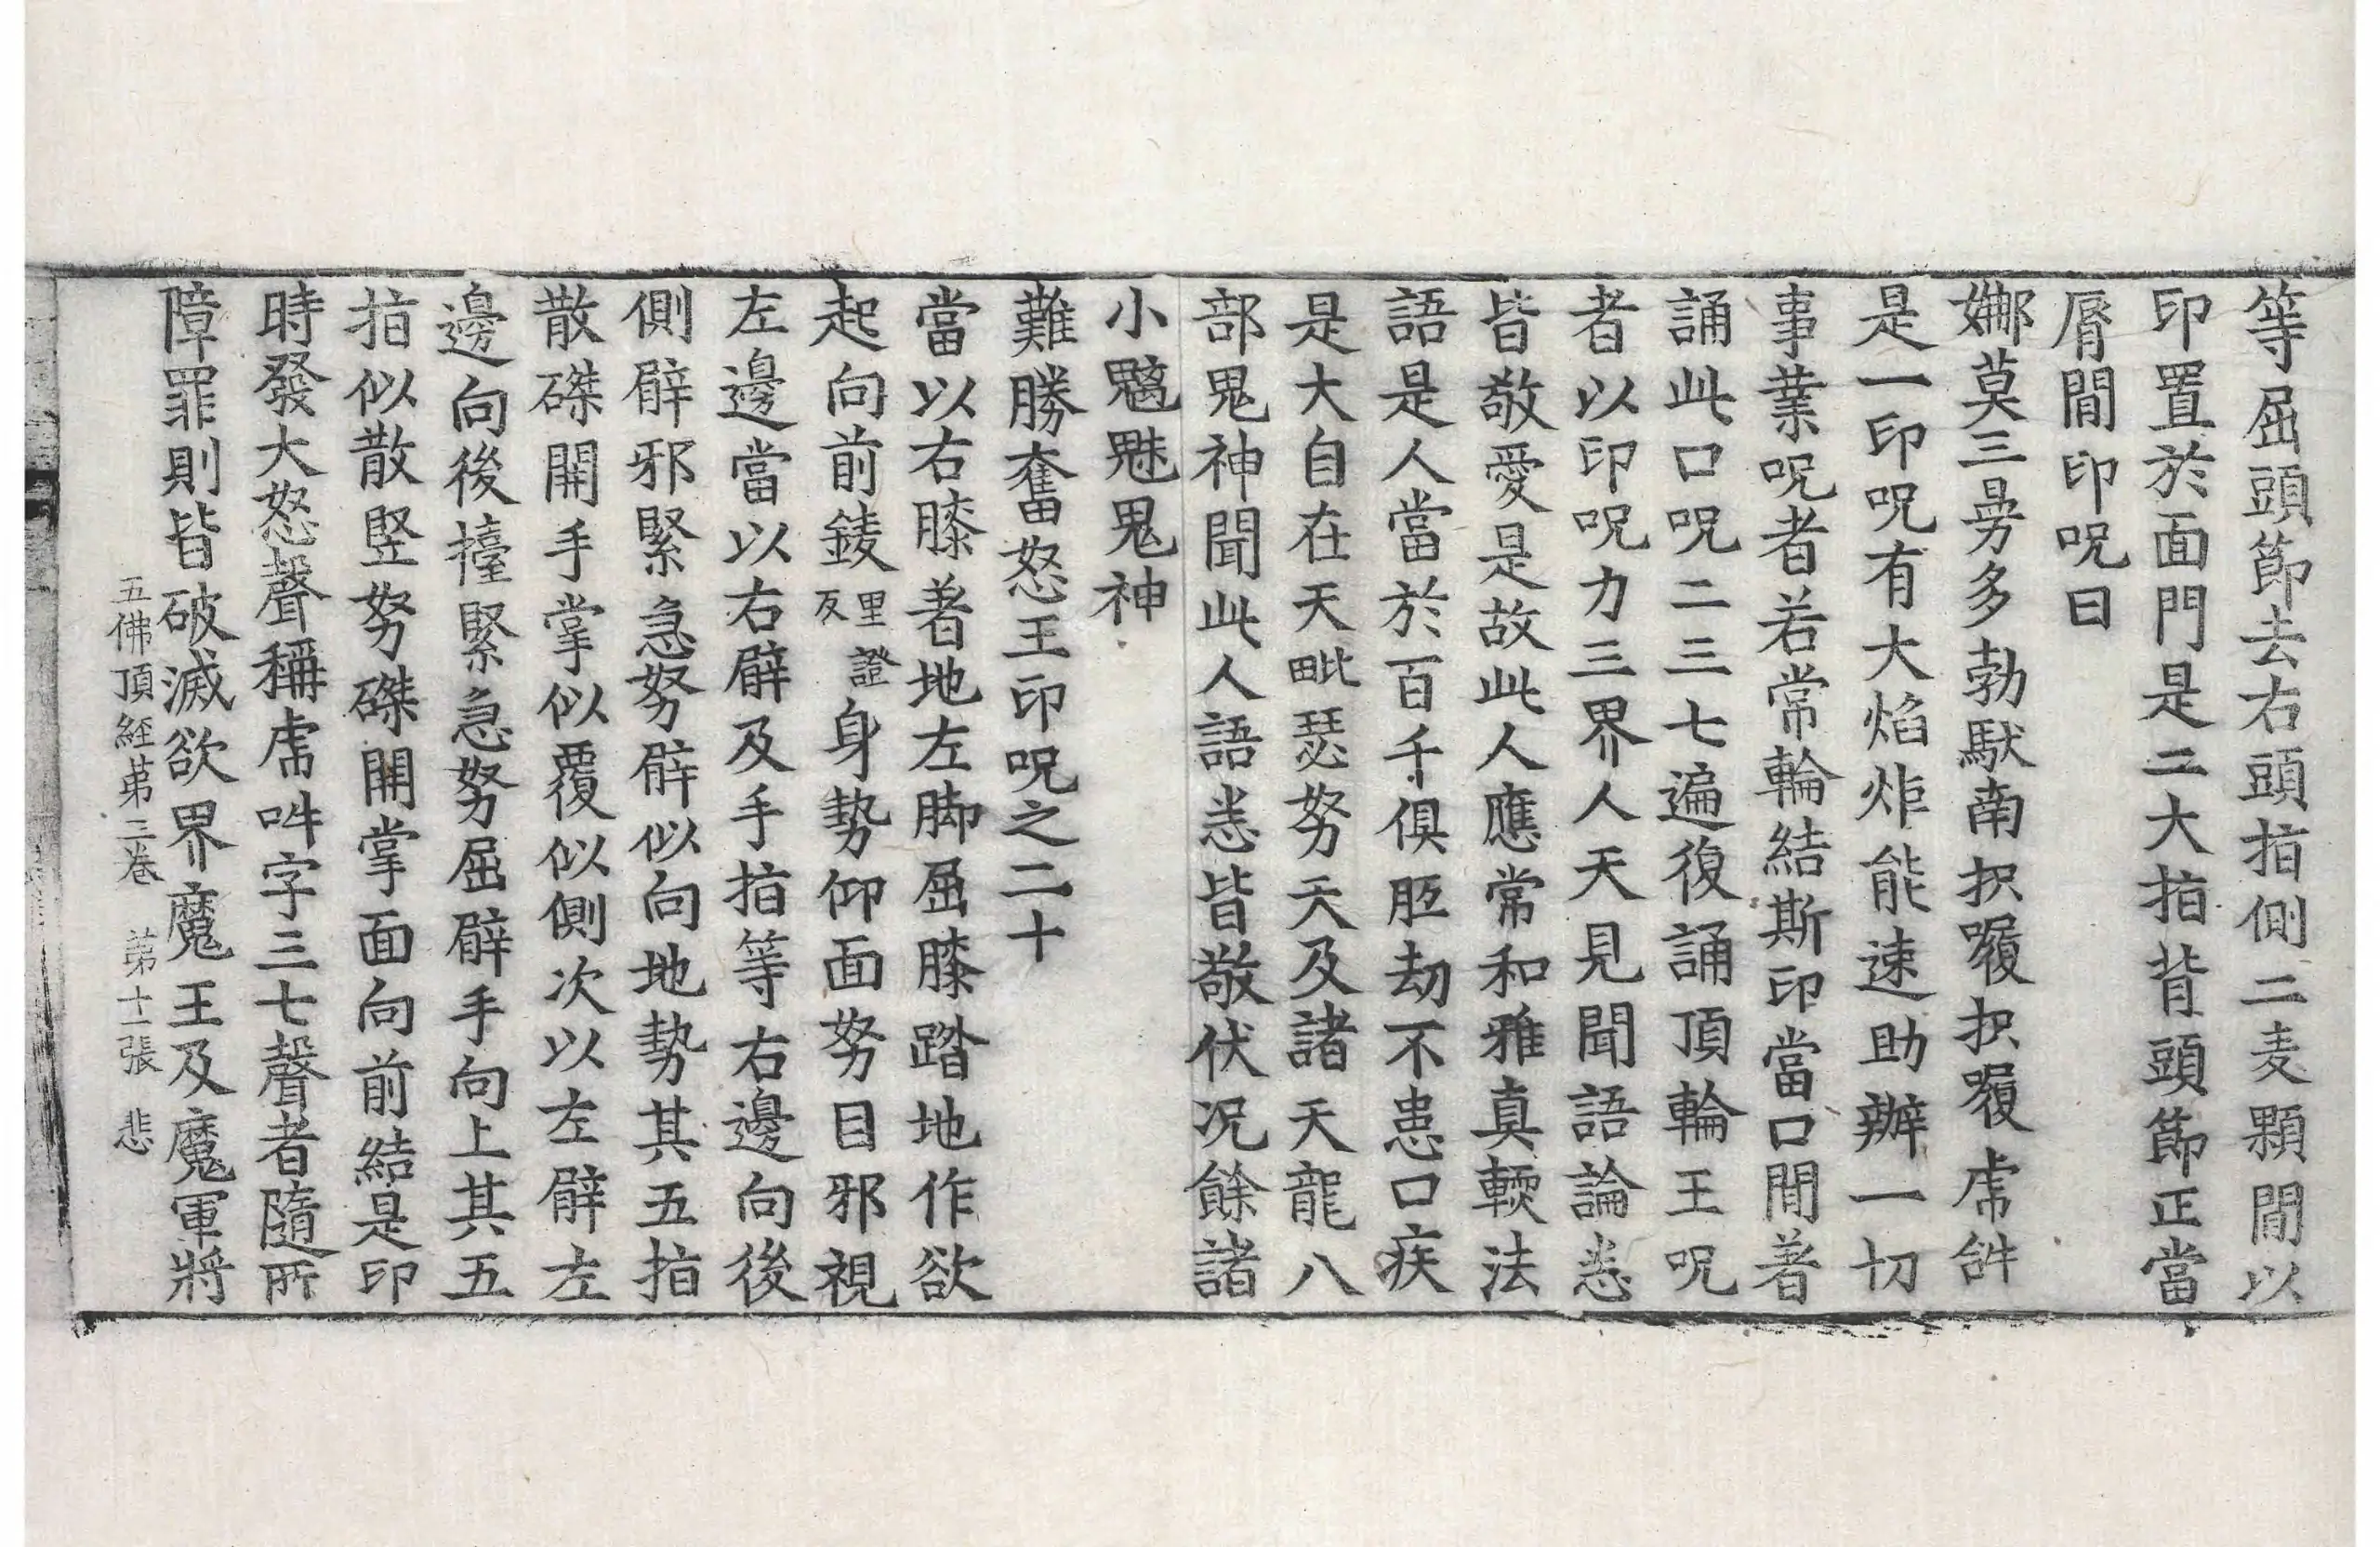 等屈頭節去右頭指側二麦顆間以
印置於面門是二大指背頭節正當
脣間印呪曰
娜莫三曼多勃馱南枳㘑枳㘑虎𤙖
是一印呪有大焰炬能速助辦一切
事業呪者若常輪結斯印當口間著
誦此口呪二三七遍復誦頂輪王呪
者以印呪力三界人天見聞語論悉
皆敬愛是故此人應常和雅真輭法
語是人當於百千俱胝劫不患口疾
是大自在天毗瑟努天及諸天龍八
部鬼神聞此人語悉皆敬伏况餘諸
小魑魅鬼神
難勝奮怒王印呪之二十
當以右膝著地左脚屈膝踏地作欲
起向前䤚里證反身勢仰面努目邪視
左邊當以右臂及手指等右邊向後
側臂邪緊急努臂似向地勢其五指
散磔開手掌似覆似側次以左臂左
邊向後擡緊急努屈臂手向上其五
指似散竪努磔開掌面向前結是印
時發大怒聲稱虎吽字三七聲者隨所
障罪則皆破滅欲界魔王及魔軍將
五佛頂經第三卷 第十一張 悲